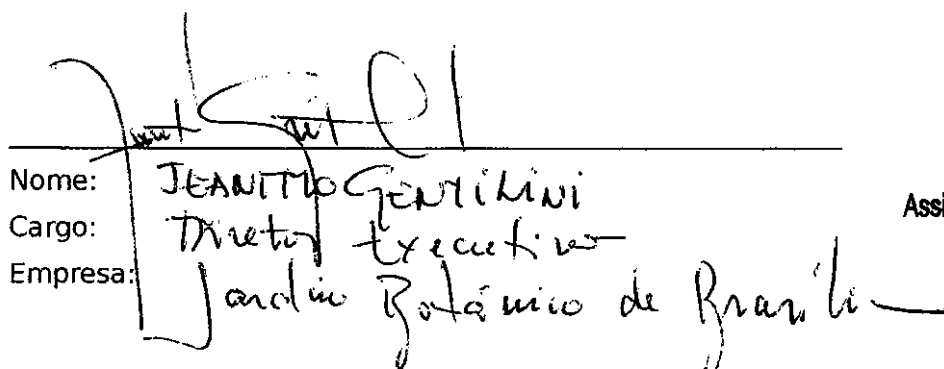 Nome: JEANITTO GENTILINI
Cargo: Diretor Executivo
Empresa: Jardim Botânico de Brasíli
Assi